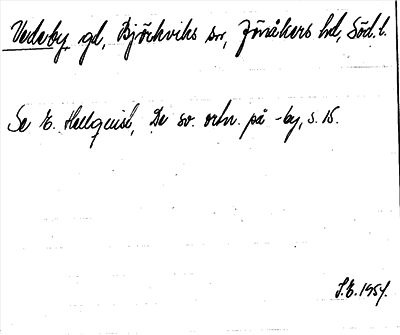 Vederby gd, Björkviks sn, Jönåkers hd, Söd. l.
Se E. Hellquist, De sv. ortn. på -by, s. 15.
S.E. 1954.